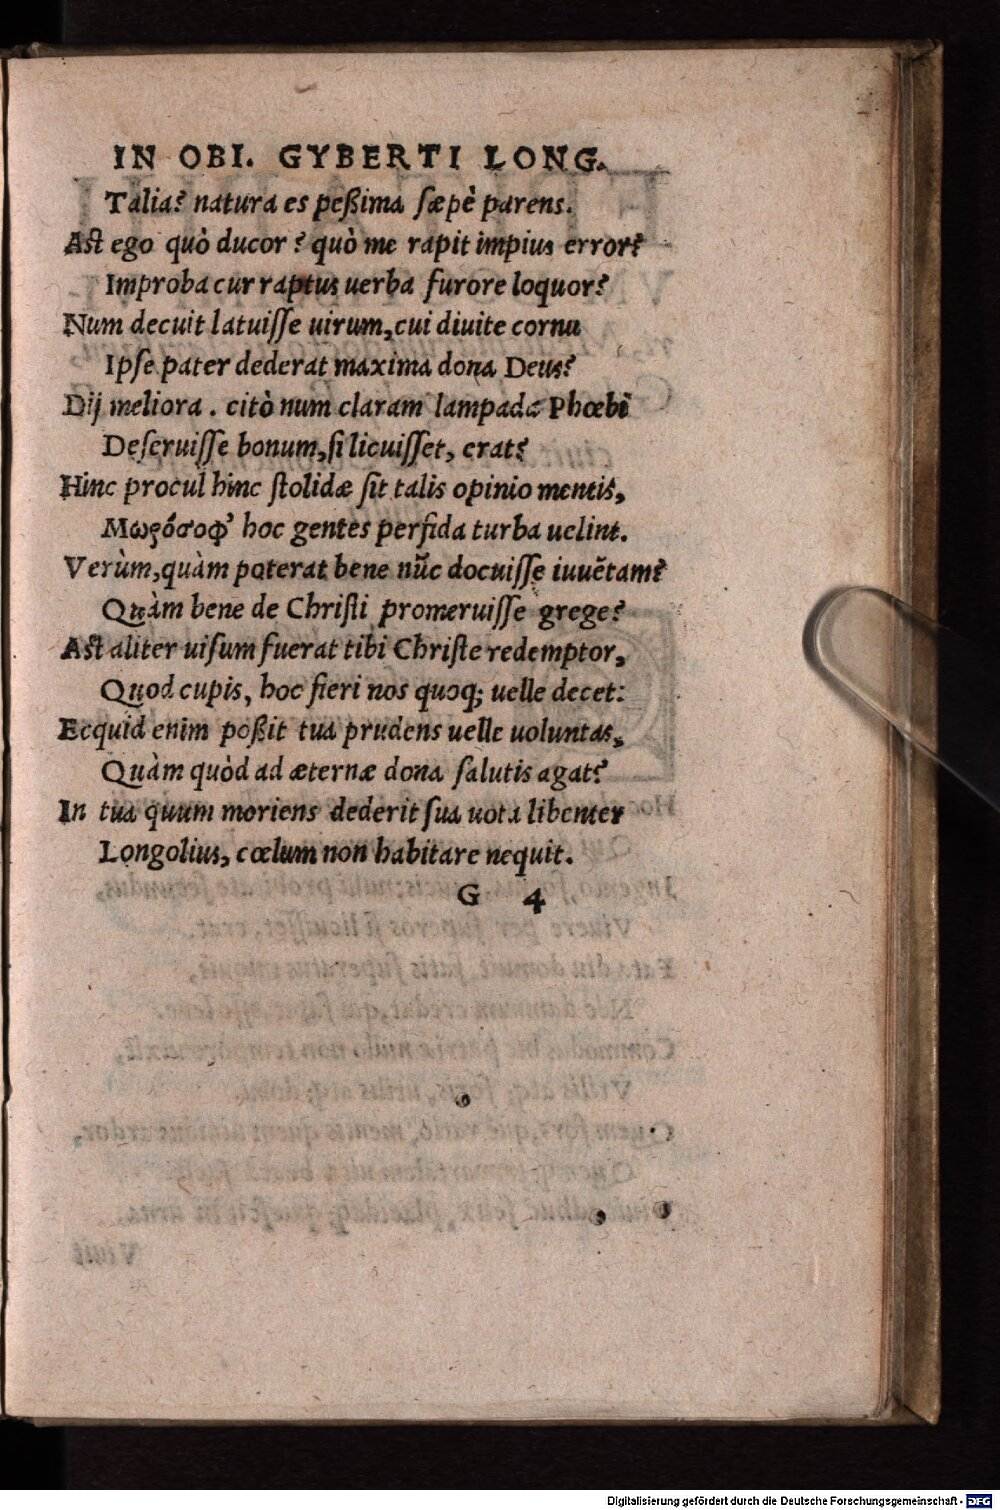 IN OBI. GYBERTI LONG.
Talia? natura es peßima sæpè parens.
Ast ego quò ducor? quò me rapit impius error?
Improba cur raptus uerba furore loquor?
Num decuit latuisse uirum, cui diuite cornu
Ipse pater dederat maxima dona Deus?
Dij meliora. citò num claram lampada Phœbi
Deseruisse bonum, si licuisset, erat?
Hinc procul hinc stolidæ sit talis opinio mentis,
Μωρόσοφ' hoc gentes perfida turba uelint.
Verùm, quàm poterat bene nũc docuisse iuuẽtam?
Quàm bene de Christi promeruisse grege?
Ast aliter uisum fuerat tibi Christe redemptor,
Quod cupis, hoc fieri nos quoq; uelle decet:
Ecquid enim poßit tua prudens uelle uoluntas,
Quàm quòd ad æternæ dona salutis agat?
In tua quum moriens dederit sua uota libenter
Longolius, cœlum non habitare nequit.
G 4
Digitalisierung gefördert durch die Deutsche Forschungsgemeinschaft - DFG